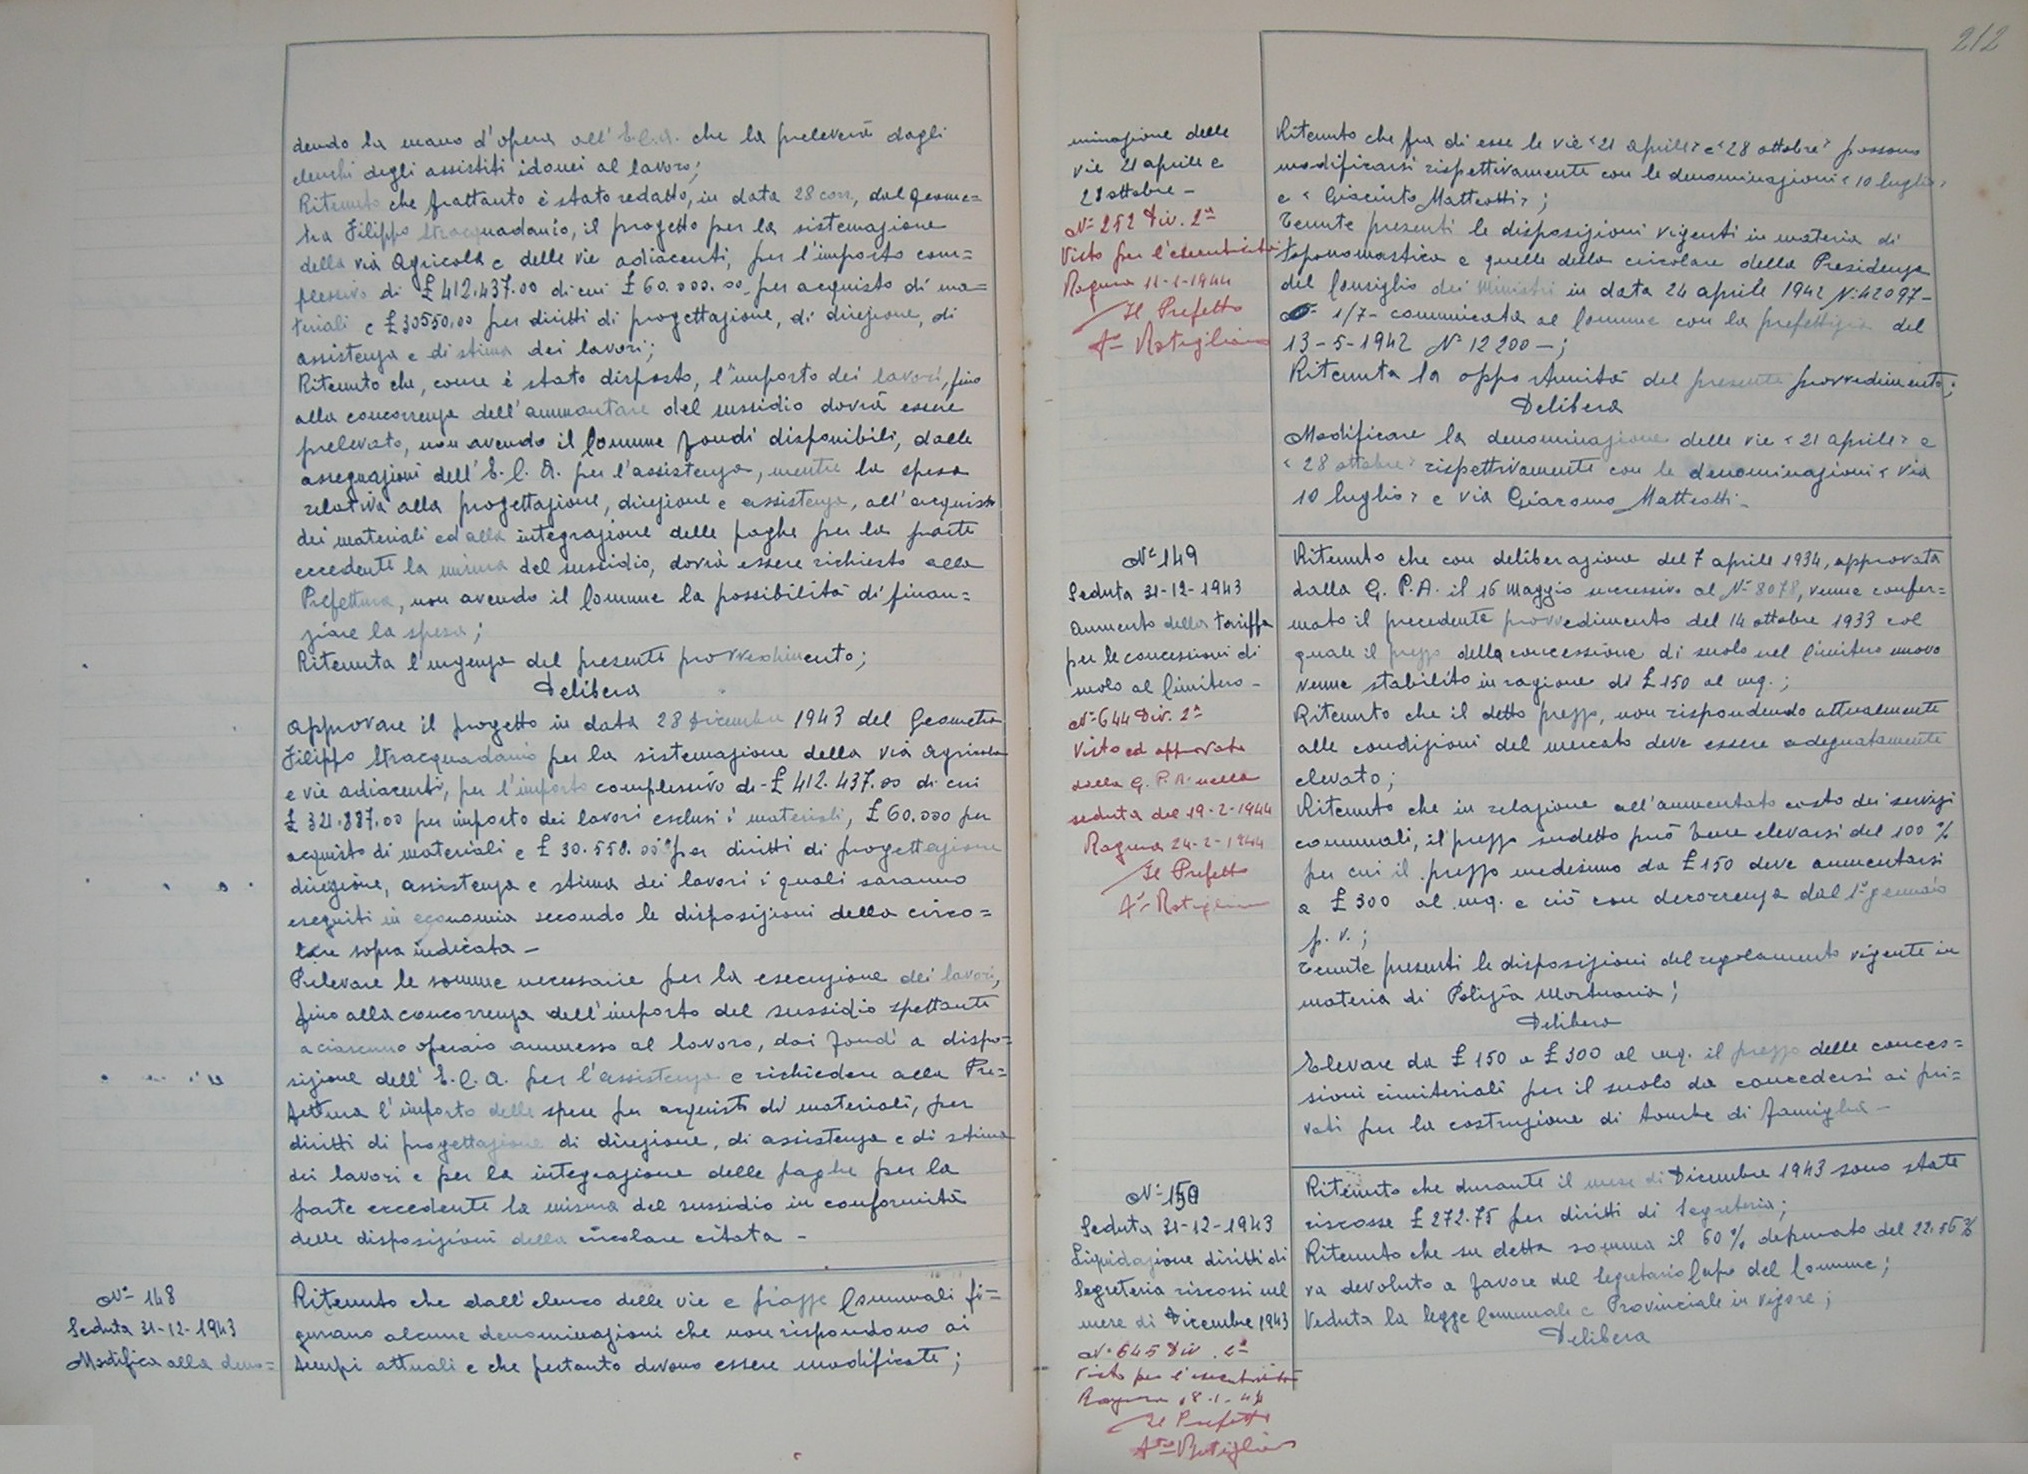 dendo la mano d'opera all'E.C.A. che la preleverà dagli
elenchi degli assistiti idonei al lavoro;
Ritenuto che frattanto è stato redatto, in data 28 corr, dal geome=
tra Filippo Stracquadanio, il progetto per la sistemazione
della via Agricola e delle vie adiacenti, per l'importo com=
plessivo di £ 412.437.00 di cui £ 60.000.00 per acquisto di ma=
teriali e £ 30550,00 per diritti di progettazione, di direzione, di
assistenza e di stima dei lavori;
Ritenuto che, come è stato disposto, l'importo dei lavori, fino
alla concorrenza dell'ammontare del sussidio dovrà essere
prelevato, non avendo il Comune fondi disponibili, dalle
assegnazioni dell'E.C.A. per l'assistenza, mentre la spesa
relativa alla progettazione, direzione e assistenza, all'acquisto
dei materiali ed alla integrazione delle paghe per la parte
eccedente la misura del sussidio, dovrà essere richiesto alla
Prefettura, non avendo il Comune la possibilità di finan=
ziare la spesa;
Ritenuta l'urgenza del presente provvedimento;
Delibera
Approvare il progetto in data 28 Dicembre 1943 del Geometra
Filippo Stracquadanio per la sistemazione della via Agricola
e vie adiacenti, per l'importo complessivo di £ 412.437.00 di cui
£ 321.887.00 per importo dei lavori esclusi i materiali, £ 60.000 per
acquisto di materiali e £ 30.550.00 per diritti di progettazione
direzione, assistenza e stima dei lavori i quali saranno
eseguiti in economia secondo le disposizioni della circo=
lare sopra indicata -
Prelevare le somme necessarie per la esecuzione dei lavori,
fino alla concorrenza dell'importo del sussidio spettante
a ciascuno operaio ammesso al lavoro, dai fondi a dispo=
sizione dell'E.C.A. per l'assistenza e richiedere alla Pre=
fettura l'importo delle spese per acquisti di materiali, per
diritti di progettazione di direzione, di assistenza e di stima
dei lavori e per la integrazione delle paghe per la
parte eccedente la misura del sussidio in conformità
delle disposizioni della circolare citata -
N° 148
Seduta 31-12-1943
Modifica alla deno=
Ritenuto che dall'elenco delle vie e piazze Comunali fi=
gurano alcune denominazioni che non rispondono ai
tempi attuali e che pertanto devono essere modificate;
212
minazione delle
vie 21 aprile e
28 ottobre -
N° 252 Div. 2ª
Visto per l'esecutività
Ragusa 11-1-1944
Il Prefetto
Ritenuto che fra di esse le vie "21 aprile" e "28 ottobre" possono
modificarsi rispettivamente con le denominazioni "10 luglio"
e "Giacinto Matteotti";
Tenute presenti le disposizioni vigenti in materia di
toponomastica e quelle della circolare della Presidenza
del Consiglio dei Ministri in data 24 aprile 1942 N° 42097-
1/7- comunicata al Comune con la prefettizia del
13-5-1942 N° 12200-;
Ritenuta la opportunità del presente provvedimento;
Delibera
Modificare la denominazione delle vie "21 aprile" e
"28 ottobre" rispettivamente con le denominazioni "via
10 luglio" e via Giacomo Matteotti -
N° 149
Seduta 31-12-1943
Aumento della tariffa
per le concessioni di
suolo al Cimitero -
N° 644 Div. 2ª
Visto ed approvato
dalla G.P.A. nella
seduta del 19-2-1944
Ragusa 24-2-1944
Il Prefetto
Ritenuto che con deliberazione del 7 aprile 1934, approvata
dalla G.P.A. il 16 Maggio successivo al N° 8078, venne confer=
mato il precedente provvedimento del 14 ottobre 1933 col
quale il prezzo della concessione di suolo nel Cimitero nuovo
venne stabilito in ragione di £ 150 al mq.;
Ritenuto che il detto prezzo, non rispondendo attualmente
alle condizioni del mercato deve essere adeguatamente
elevato;
Ritenuto che in relazione all'aumentato costo dei servizi
comunali, il prezzo sudetto può bene elevarsi del 100%
per cui il prezzo medesimo da £ 150 deve aumentarsi
a £ 300 al mq. e ciò con decorrenza dal 1° gennaio
p.v.;
Tenute presenti le disposizioni del regolamento vigente in
materia di Polizia Mortuaria;
Delibera
Elevare da £ 150 a £ 300 al mq. il prezzo delle conces=
sioni cimiteriali per il suolo da concedersi ai pri=
vati per la costruzione di tombe di famiglia -
N° 150
Seduta 31-12-1943
Liquidazione diritti di
Segreteria riscossi nel
mese di Dicembre 1943
N° 645 Div. 2ª
Visto per l'esecutività
Ragusa 18-1-44
Il Prefetto
Ritenuto che durante il mese di Dicembre 1943 sono state
riscosse £ 272.75 per diritti di Segreteria;
Ritenuto che su detta somma il 60% depurato del 22.56%
va devoluto a favore del Segretario Capo del Comune;
Veduta la legge Comunale e Provinciale in vigore;
Delibera